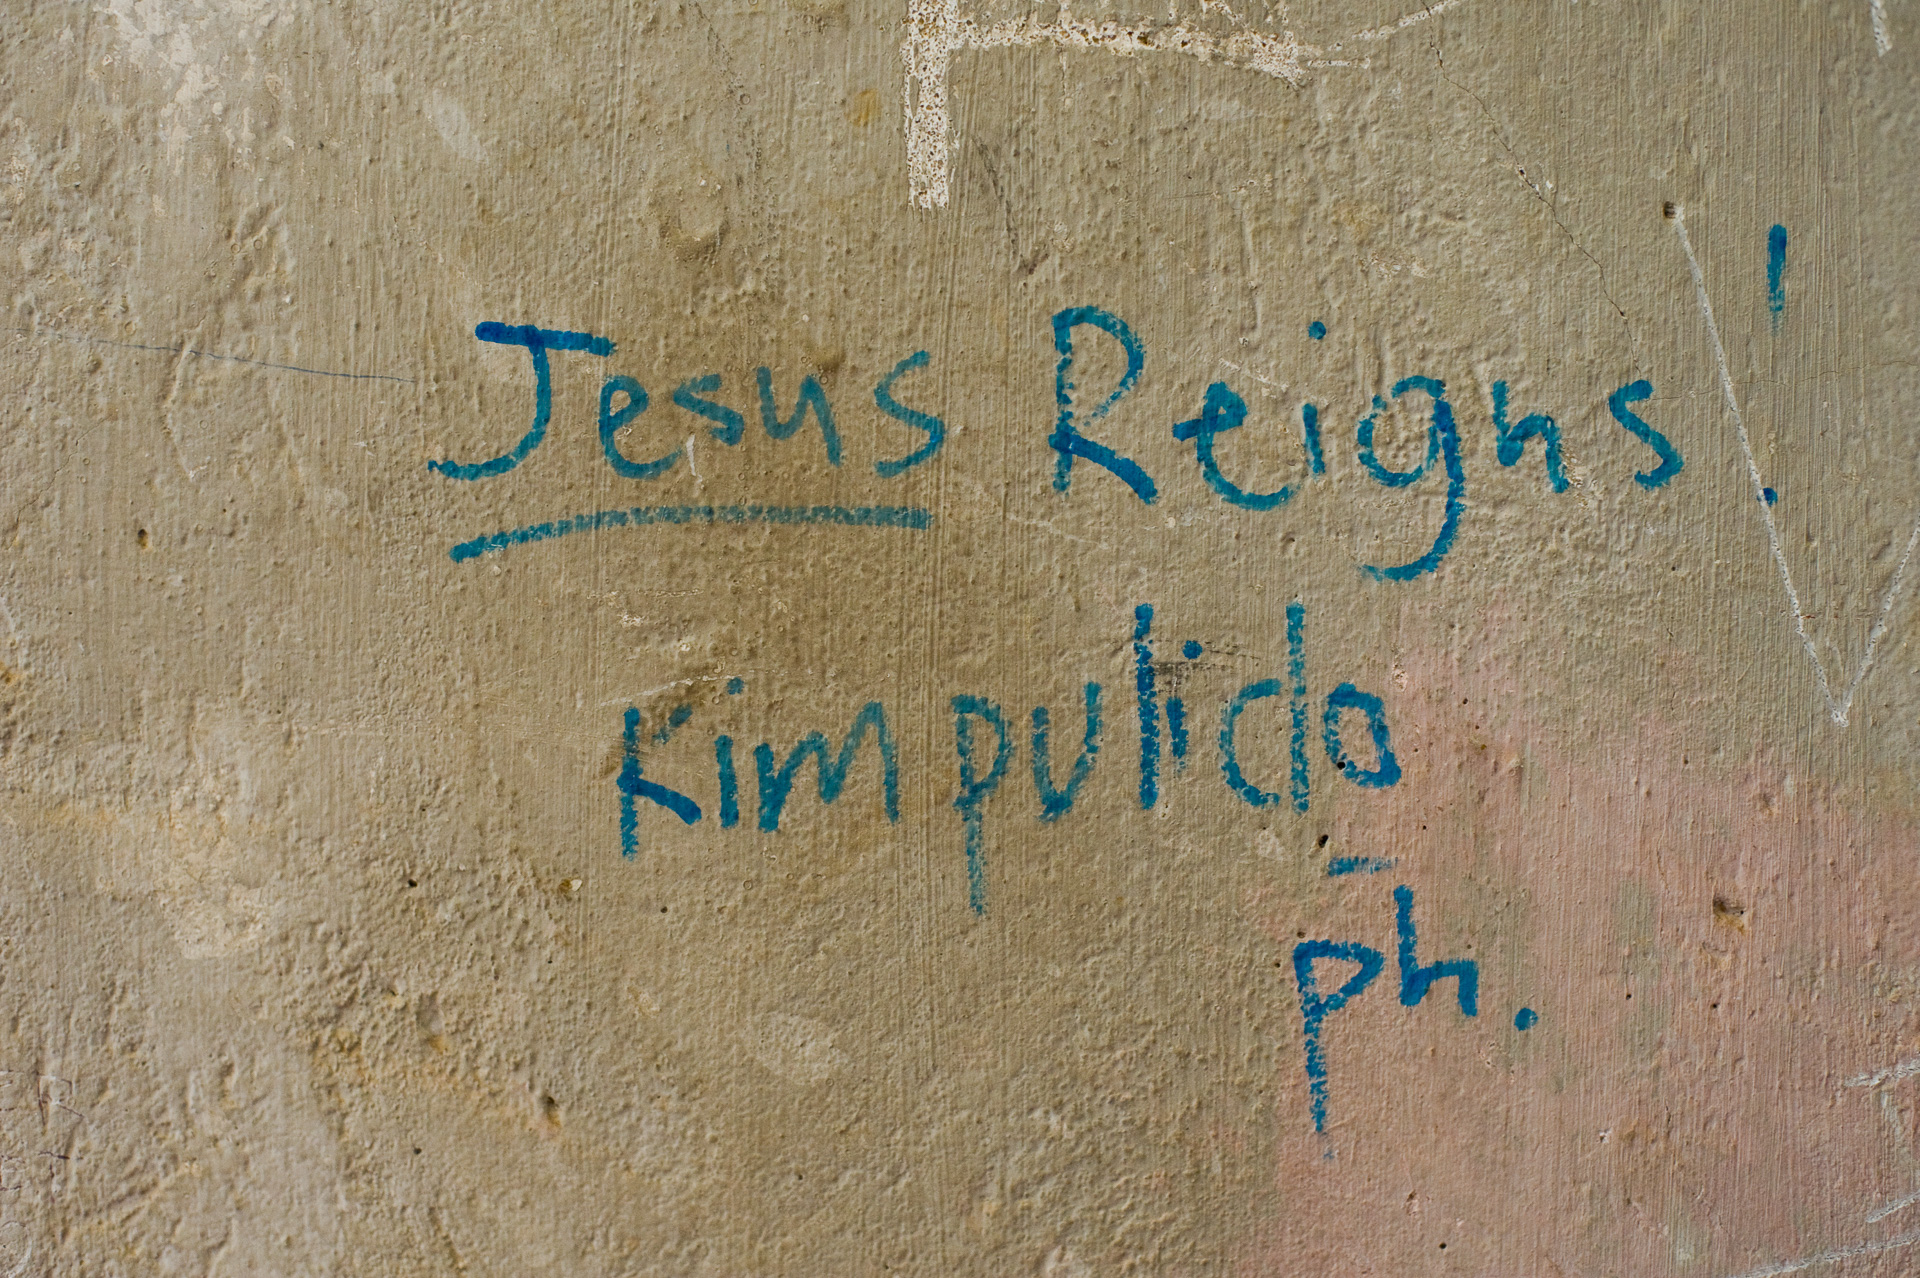 Jesus Reigns!
Kim pulido
- ph.